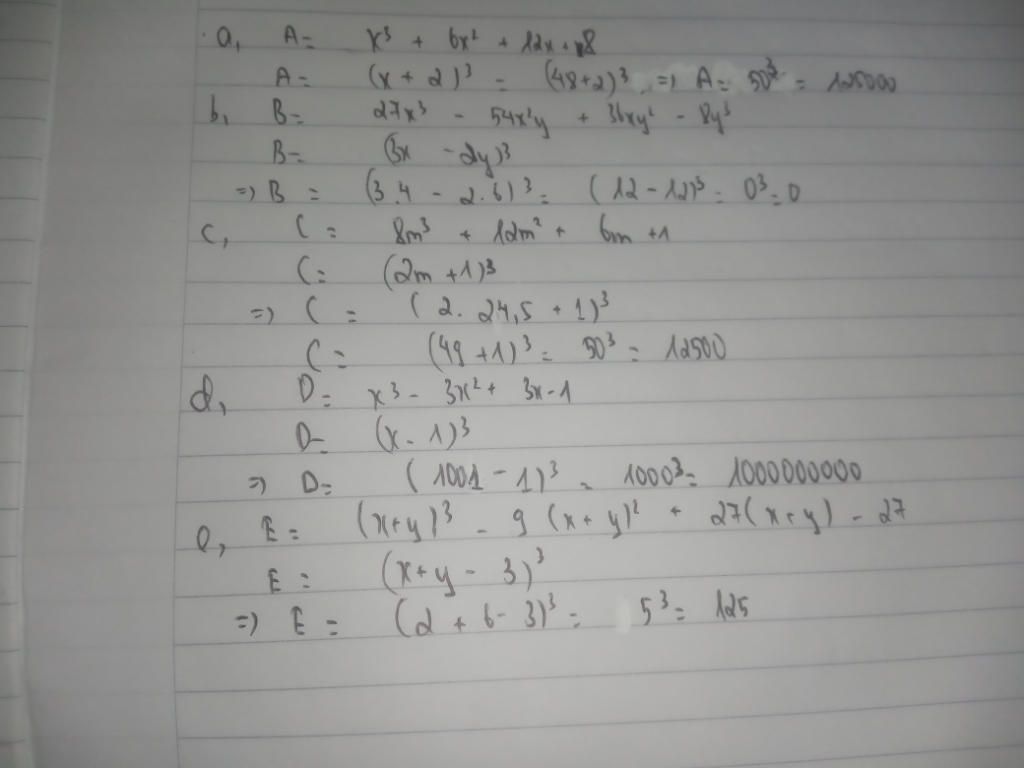 a, A = x³ + 6x² + 12x + 8
A = (x + 2)³ = (48+2)³ => A = 50³ = 125000
b, B = 27x³ - 54x²y + 36xy² - 8y³
B = (3x - 2y)³
=> B = (3.4 - 2.6)³ = (12 - 12)³ = 0³ = 0
c, C = 8m³ + 12m² + 6m + 1
C = (2m + 1)³
=> C = (2. 24,5 + 1)³
C = (49 + 1)³ = 50³ = 12500
d, D = x³ - 3x² + 3x - 1
D = (x - 1)³
=> D = (1001 - 1)³ = 1000³ = 1000000000
e, E = (x+y)³ - 9 (x + y)² + 27(x + y) - 27
E = (x+y - 3)³
=> E = (2 + 6 - 3)³ = 5³ = 125